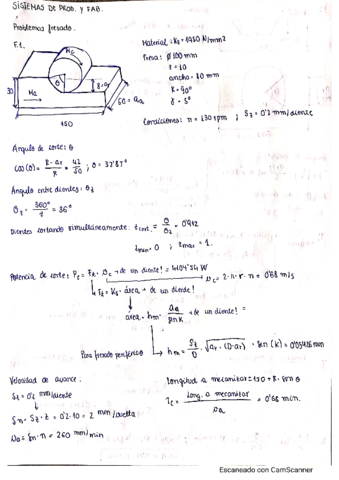 SISTEMAS DE PROD. Y FAB.
Problemas fresado.
F.1.
Material: Ks = 1920 N/mm²
Fresa: Ø 100 mm
z = 10
ancho = 80 mm
K = 90°
γ = 5°
Condiciones: n = 130 rpm ; Sz = 0'2 mm/diente
30
450
8 = ar
60 = aa
Ángulo de corte: θ
cos(θ) = (R - ar)/R = 42/50 ; θ = 32'85°
Ángulo entre dientes: θz
θz = 360°/z = 36°
Dientes cortando simultáneamente: zcort. = θ/θz = 0'912
zmin = 0 ; zmax = 1.
Potencia de corte: Pc = Fc · vc → de un diente! = 4104'34 W
vc = 2·π·r·n = 0'68 m/s
Fc = Ks · área → de un diente!
área = hm · aa/sen K → de un diente! =
Para fresado periférico hm = Sz/D · √(ar · (D-ar)) · sen (K) = 0'05426 mm
Velocidad de avance:
Sz = 0'2 mm/diente
Sn = Sz · z = 0'2 · 10 = 2 mm/vuelta
va = Sn · n = 260 mm/min
Longitud a mecanizar = 450 + R · sen θ
Tc = Long. a mecanizar/va = 0'68 min.
Escaneado con CamScanner